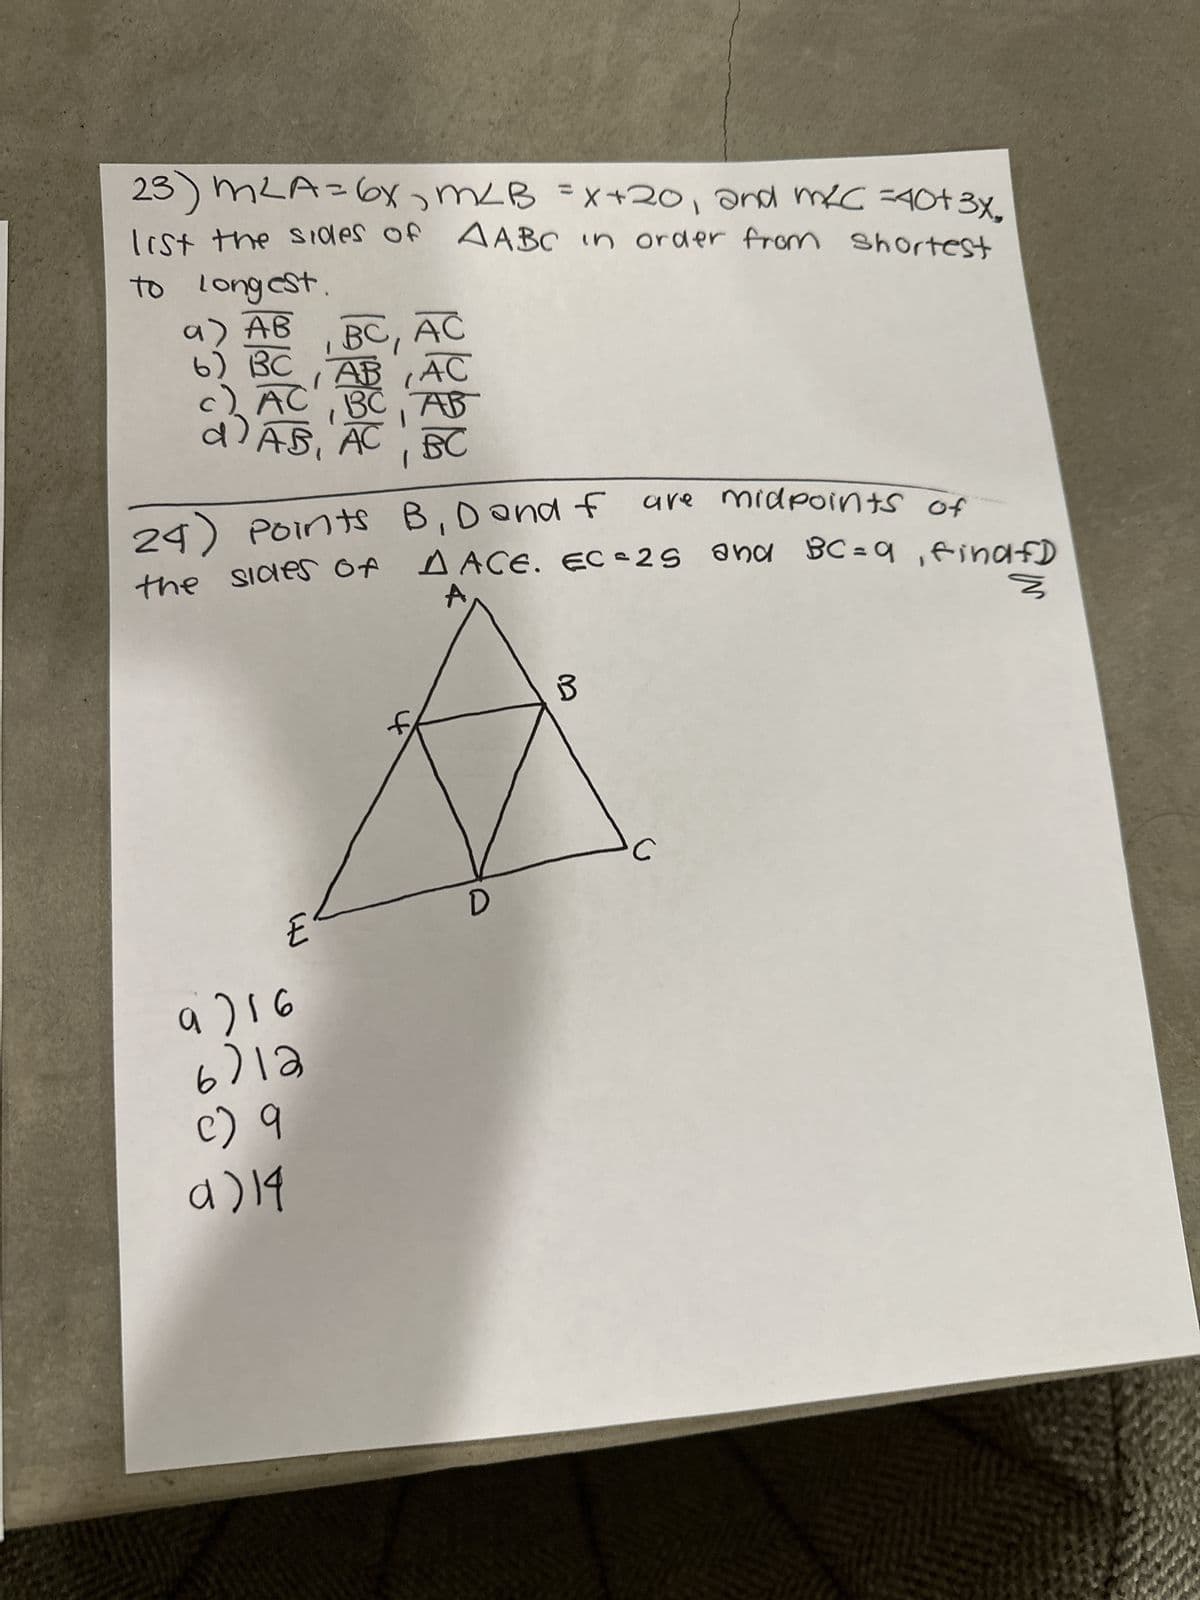 23) m∠A=6x, m∠B = x+20, and m∠C =40+3x.
list the sides of △ABC in order from shortest
to longest.
a) AB, BC, AC
b) BC, AB, AC
c) AC, BC, AB
d) AB, AC, BC
24) Points B, D and f are midpoints of
the sides of △ACE. EC=25 and BC=9, find fD
A
B
f
C
D
E
a) 16
b) 12
c) 9
d) 14